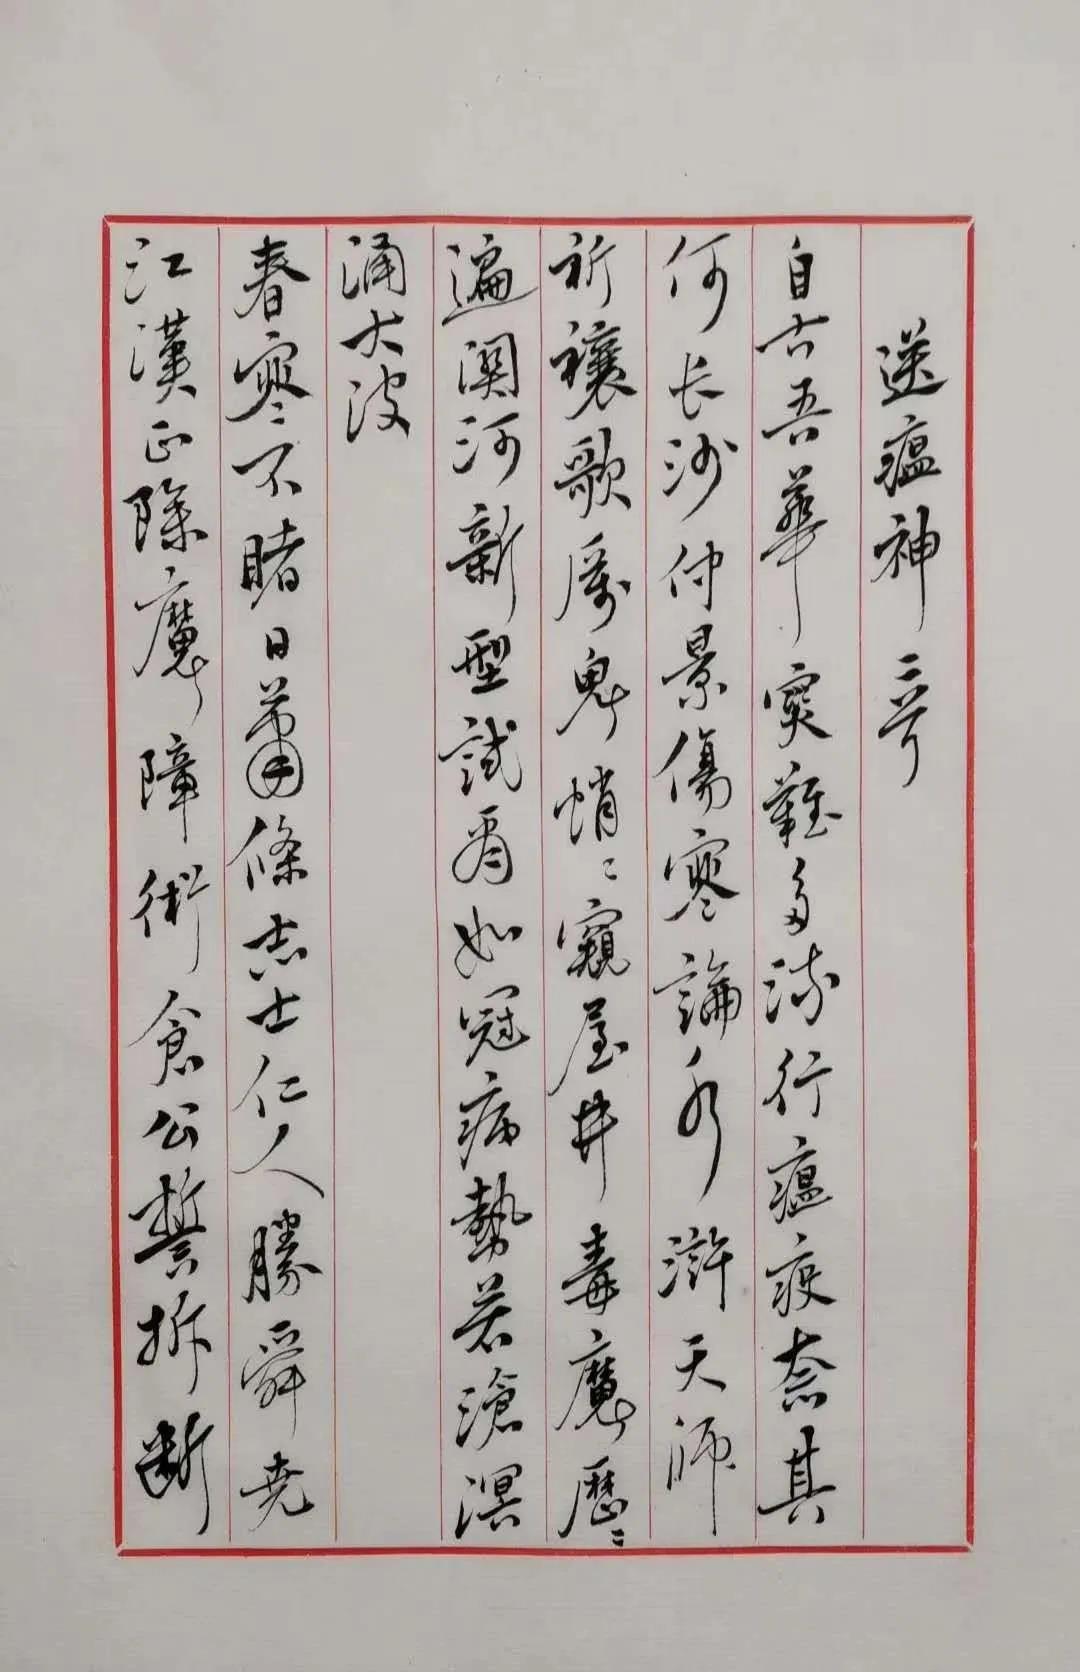 送瘟神二
自古吾華灾難多流行瘟疫奈其
何长沙仲景傷寒論水滸天師
祈禳歌厉鬼悄〻窺屋井毒魔歷〻
遍関河新型試看如冠病勢若滄溟
涌大波
春寒不睹日蕭條志士仁人勝舜尧
江漢正除魔障術倉公誓拆断